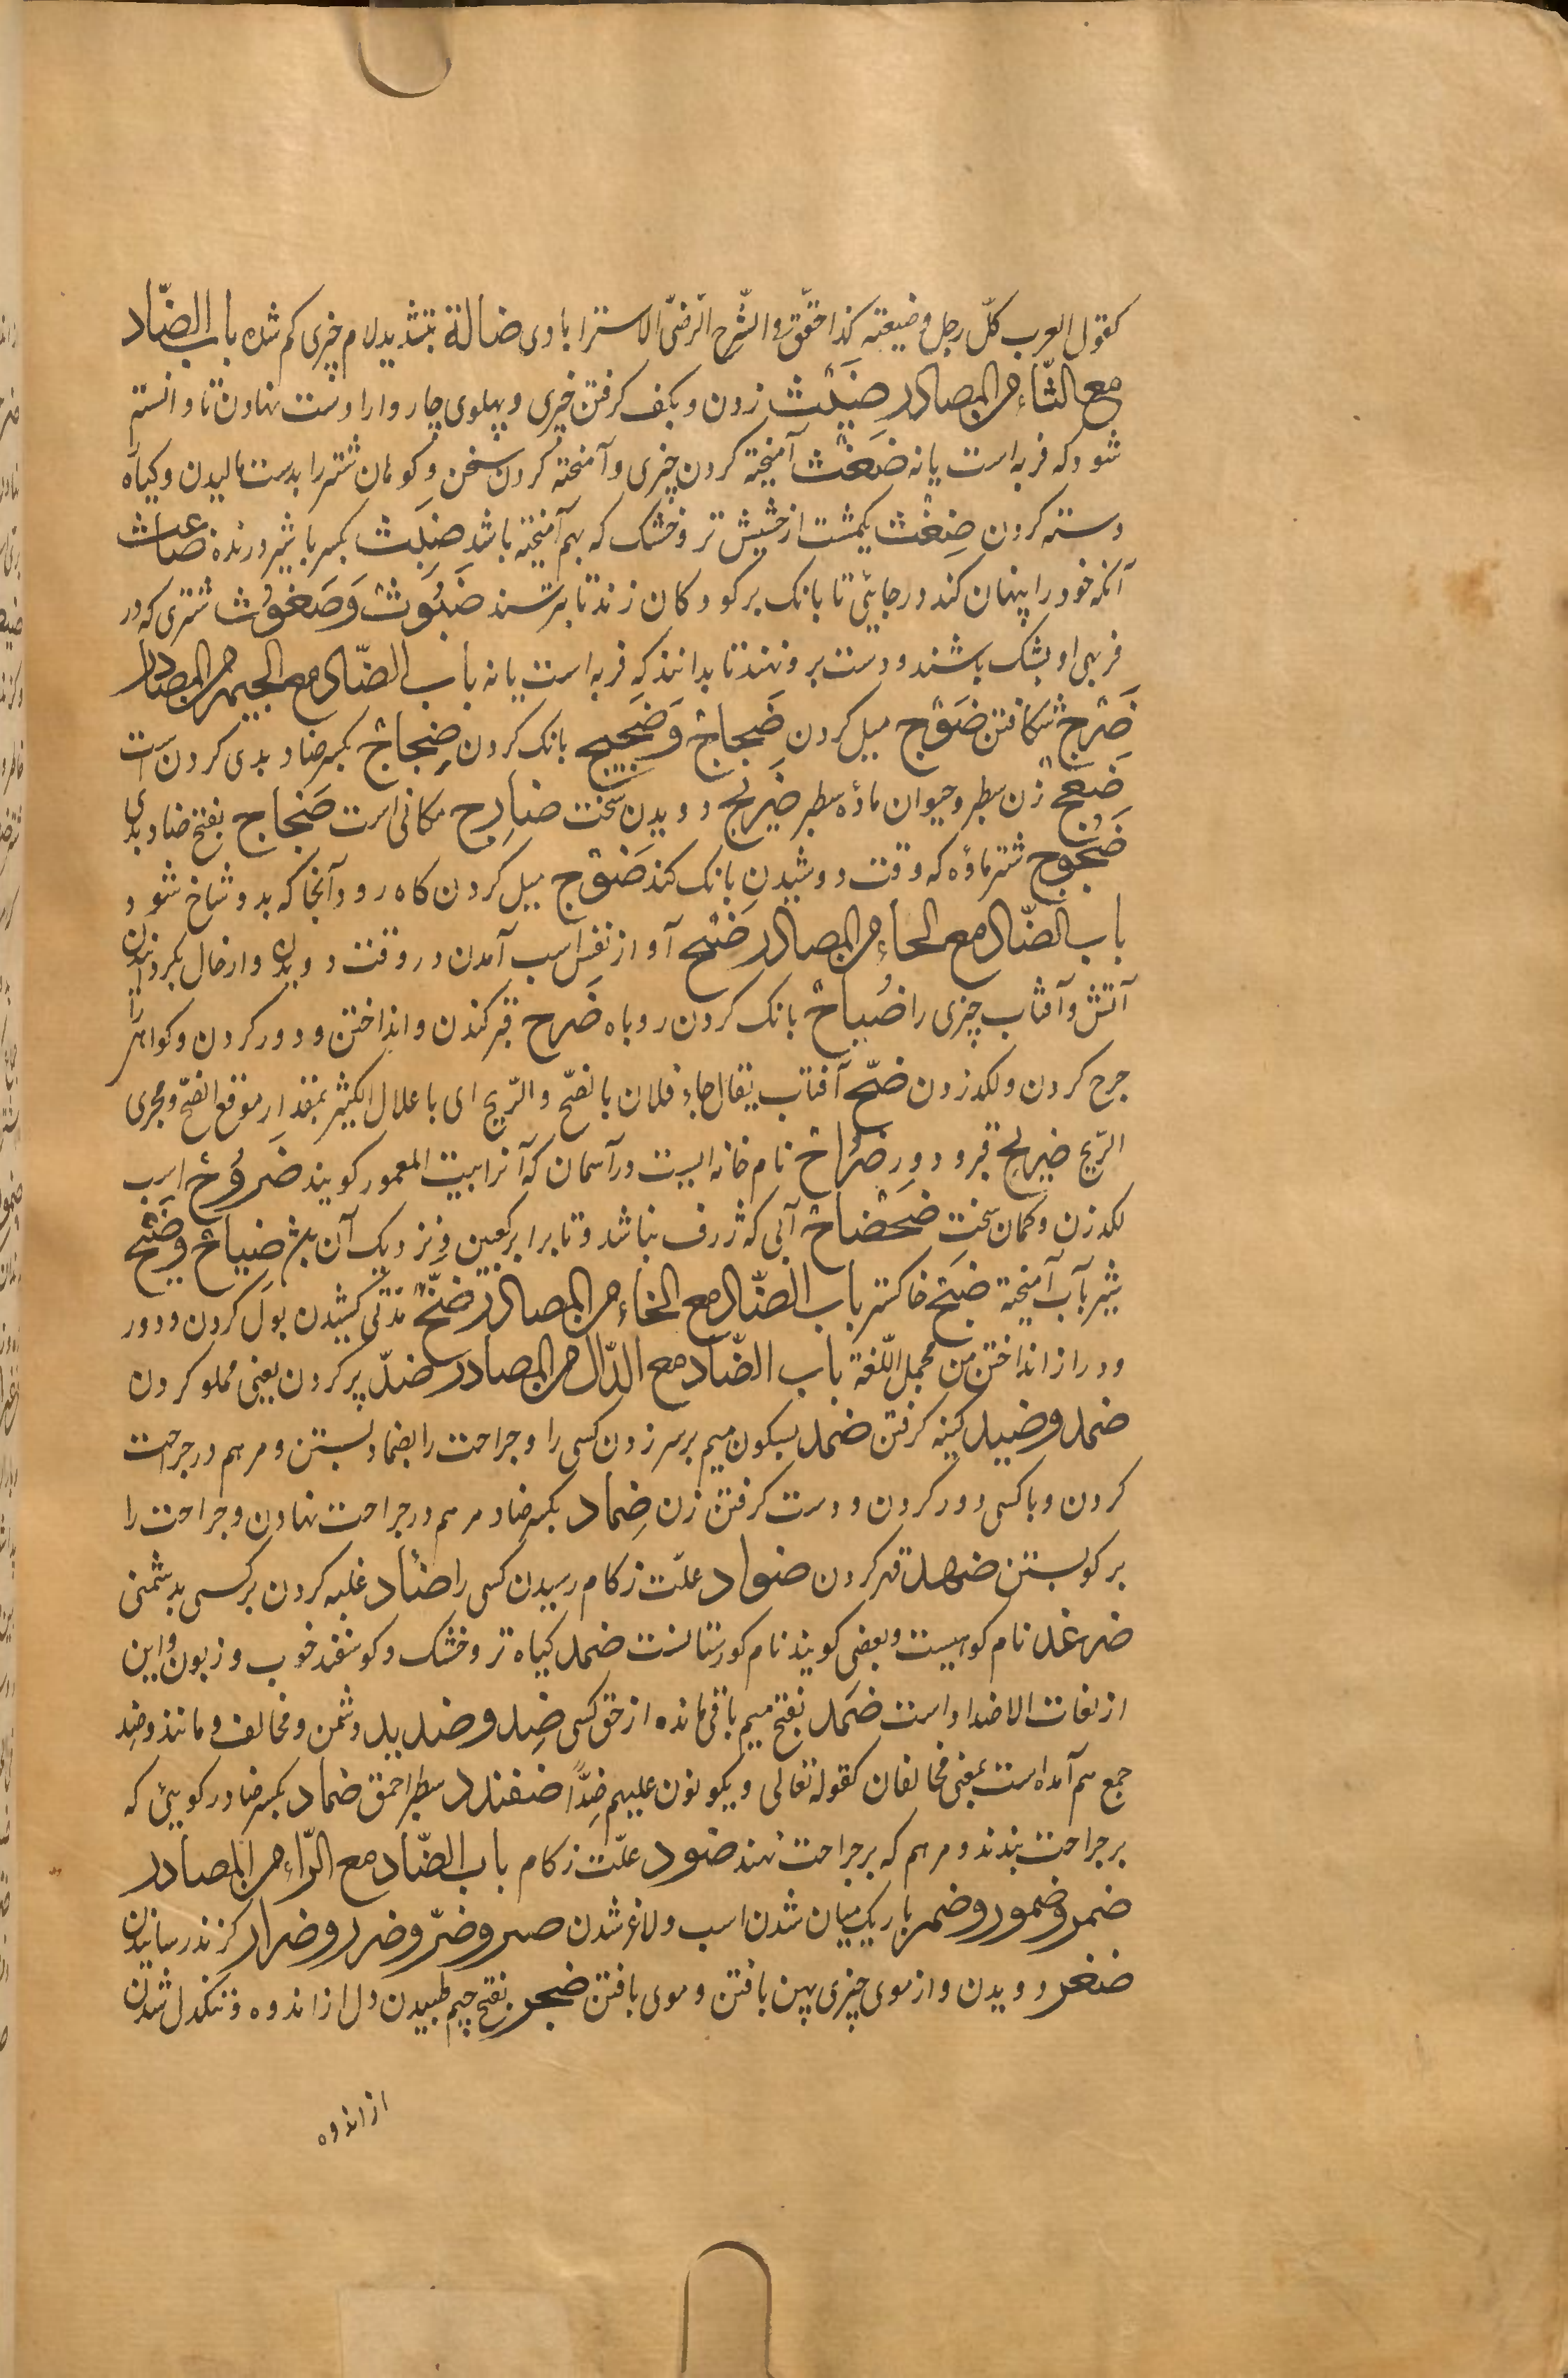 کقول العرب کلّ رجل وضیعته کذا حقّق والشّرح الرّضی الاسترابادی ضالة بتشدید لام چیزی کم شده باب الضّاد
مع الثّاء من المصادر ضَبْث زدن و بکف کرفتن چیزی و پهلوی چاروا را دست نهادن تا دانسته
شود که فربه است یا نه ضَغْث آمیخته کردن چیزی و آمیخته کردن سخن و کوهان شتر را بدست مالیدن و کیاه
دسته کردن ضِغْث یکمشت از حشیش تر و خشک که بهم آمیخته باشد ضِبَث بکسر با شیر درنده ضاغث
آنکه خود را پنهان کند در جایی تا بانک بر کودکان زند تا بترسند ضَبُوث وَضَغوُث شتری که در
فربهی او بشک باشند و دست برو نهند تا بدانند که فربه است یا نه باب الضّاد مع الجیم من المصادر
ضَرْج شکافتن ضَوْج میل کردن ضَجاج وَضَجیج بانک کردن ضِجاج بکسر ضاد بدی کردن ست
ضَمْعَج زن سطبر و حیوان مادّه سطبر ضَریج دویدن سخت ضارِج مکانی است ضَجاج بفتح ضاد بدی
ضَجُوج شتر مادّه که وقت دوشیدن بانک کند ضَوْج میل کردن کاه رود آنجا که بدو شاخ شود
باب الضّاد مع الحاء من المصادر ضَبْح آواز نفس اسب آمدن در وقت دویدن و از حال بکردانیدن
آتش و آفتاب چیزی را ضُباح بانک کردن روباه ضَرح قبر کندن و انداختن و دور کردن و کواهی را
جرح کردن و لکد زدن ضحّ آفتاب یقال جاء فلان بالضّح والرّیح ای باعلال الکثیر بمقدار موقع الضّح و مجری
الرّیح ضریح قبر و دور ضُراح نام خانه ایست در آسمان که آنرا بیت المعمور کویند ضَروُح اسب
لکد زن و کمان سخت ضَحْضاح آبی که ژرف نباشد و تا برابر کعبین و نزدیک آن باشد ضَیاح وضَیْح
شیر بآب آمیخته ضَبْح خاکستر باب الضّاد مع الخاء من المصادر ضَخّ مدّتی کشیدن بول کردن و دور
و دراز انداختن من مجمل اللّغة باب الضّاد مع الدّال من المصادر ضدّ پر کردن یعنی مملو کردن
ضمد وضبد کینه کرفتن ضمد بسکون میم بر سر زدن کسی را و جراحت را بضماد بستن و مرهم در جراحت
کردن و با کسی دور کردن و دوست کرفتن زن ضِماد بکسر ضاد مرهم در جراحت نهادن و جراحت را
بر کو بستن ضهد قهر کردن ضواد علّت زکام رسیدن کسی را ضئاد غلبه کردن بر کسی بدشمنی
ضرغد نام کوهیست و بعضی کویند نام کورستانست ضمد کیاه تر و خشک و کوسفند خوب و زبون و این
از لغات الاضداد است ضَمَد بفتح میم باقی مانده از حق کسی ضِد وضدید دشمن و مخالف و مانند و ضِد
جمع هم آمده است بمعنی مخالفان کقوله تعالی و یکونون علیهم ضِدًّا ضفندد سطبر احمق ضماد بکسر ضاد رکویی که
بر جراحت بندند و مرهم که بر جراحت نهند ضود علّت زکام باب الضّاد مع الرّاء من المصادر
ضمر وضمور وضمر باریک میان شدن اسب و لاغر شدن ضیر وضرّ وضرر وضرار کزند رسانیدن
ضفر دویدن و از موی چیزی پهن بافتن و موی بافتن ضجر بفتح جیم طبیدن دل از اندوه و تنکدل شدن
از اندوه